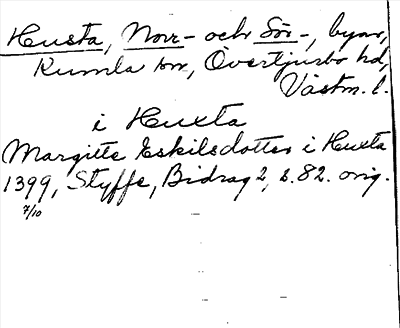 Husta, Norr- och Sör-, byar,
Kumla sn, Övertjurbo hd,
Västm. l.
i Huxta
Margitte Eskilsdotter i Huxta
1399, Styffe, Bidrag 2, s. 82. orig.
7/10